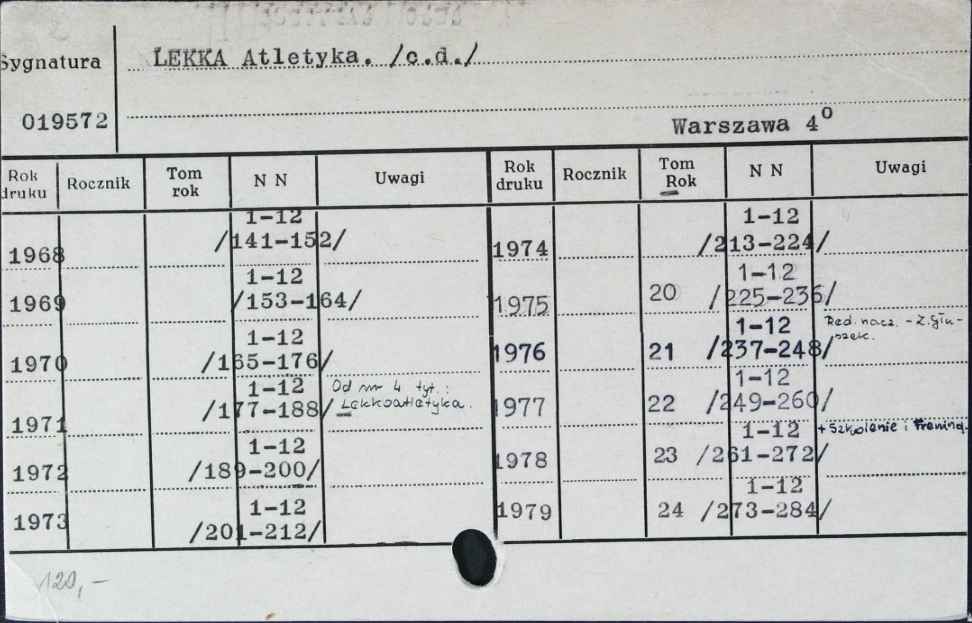 Sygnatura
LEKKA Atletyka. /c.d./
019572
Warszawa 4⁰
Rok druku Rocznik Tom rok N N Uwagi
1-12
1968 /141-152/
1-12
1969 /153-164/
1-12
1970 /165-176/
1-12 Od nr 4 tyt.:
1971 /177-188/ Lekkoatletyka.
1-12
1972 /189-200/
1-12
1973 /201-212/
Rok druku Rocznik Tom Rok N N Uwagi
1-12
1974 /213-224/
1-12
1975 20 /225-236/
1-12 Red. nacz. - Z. Głu-
1976 21 /237-248/ szek.
1-12
1977 22 /249-260/
1-12 + Szkolenie i Trening.
1978 23 /261-272/
1-12
1979 24 /273-284/
120,-